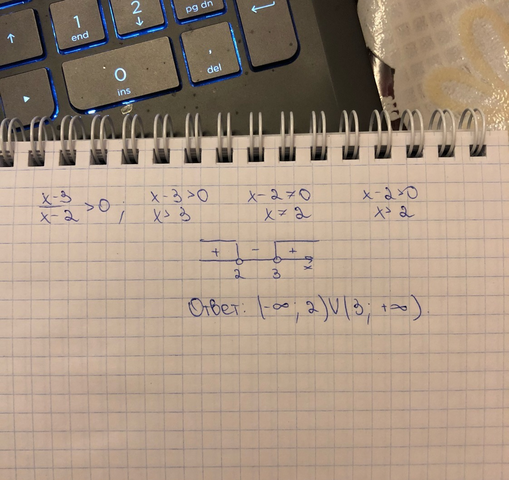 1
end
2
↓
pg dn
↑
0
ins
.
del
x-3/x-2 >0; x-3>0 x-2≠0 x-2>0
x>3 x≠2 x>2
+ - +
2 3 x
Ответ: (-∞; 2)∪(3; +∞)